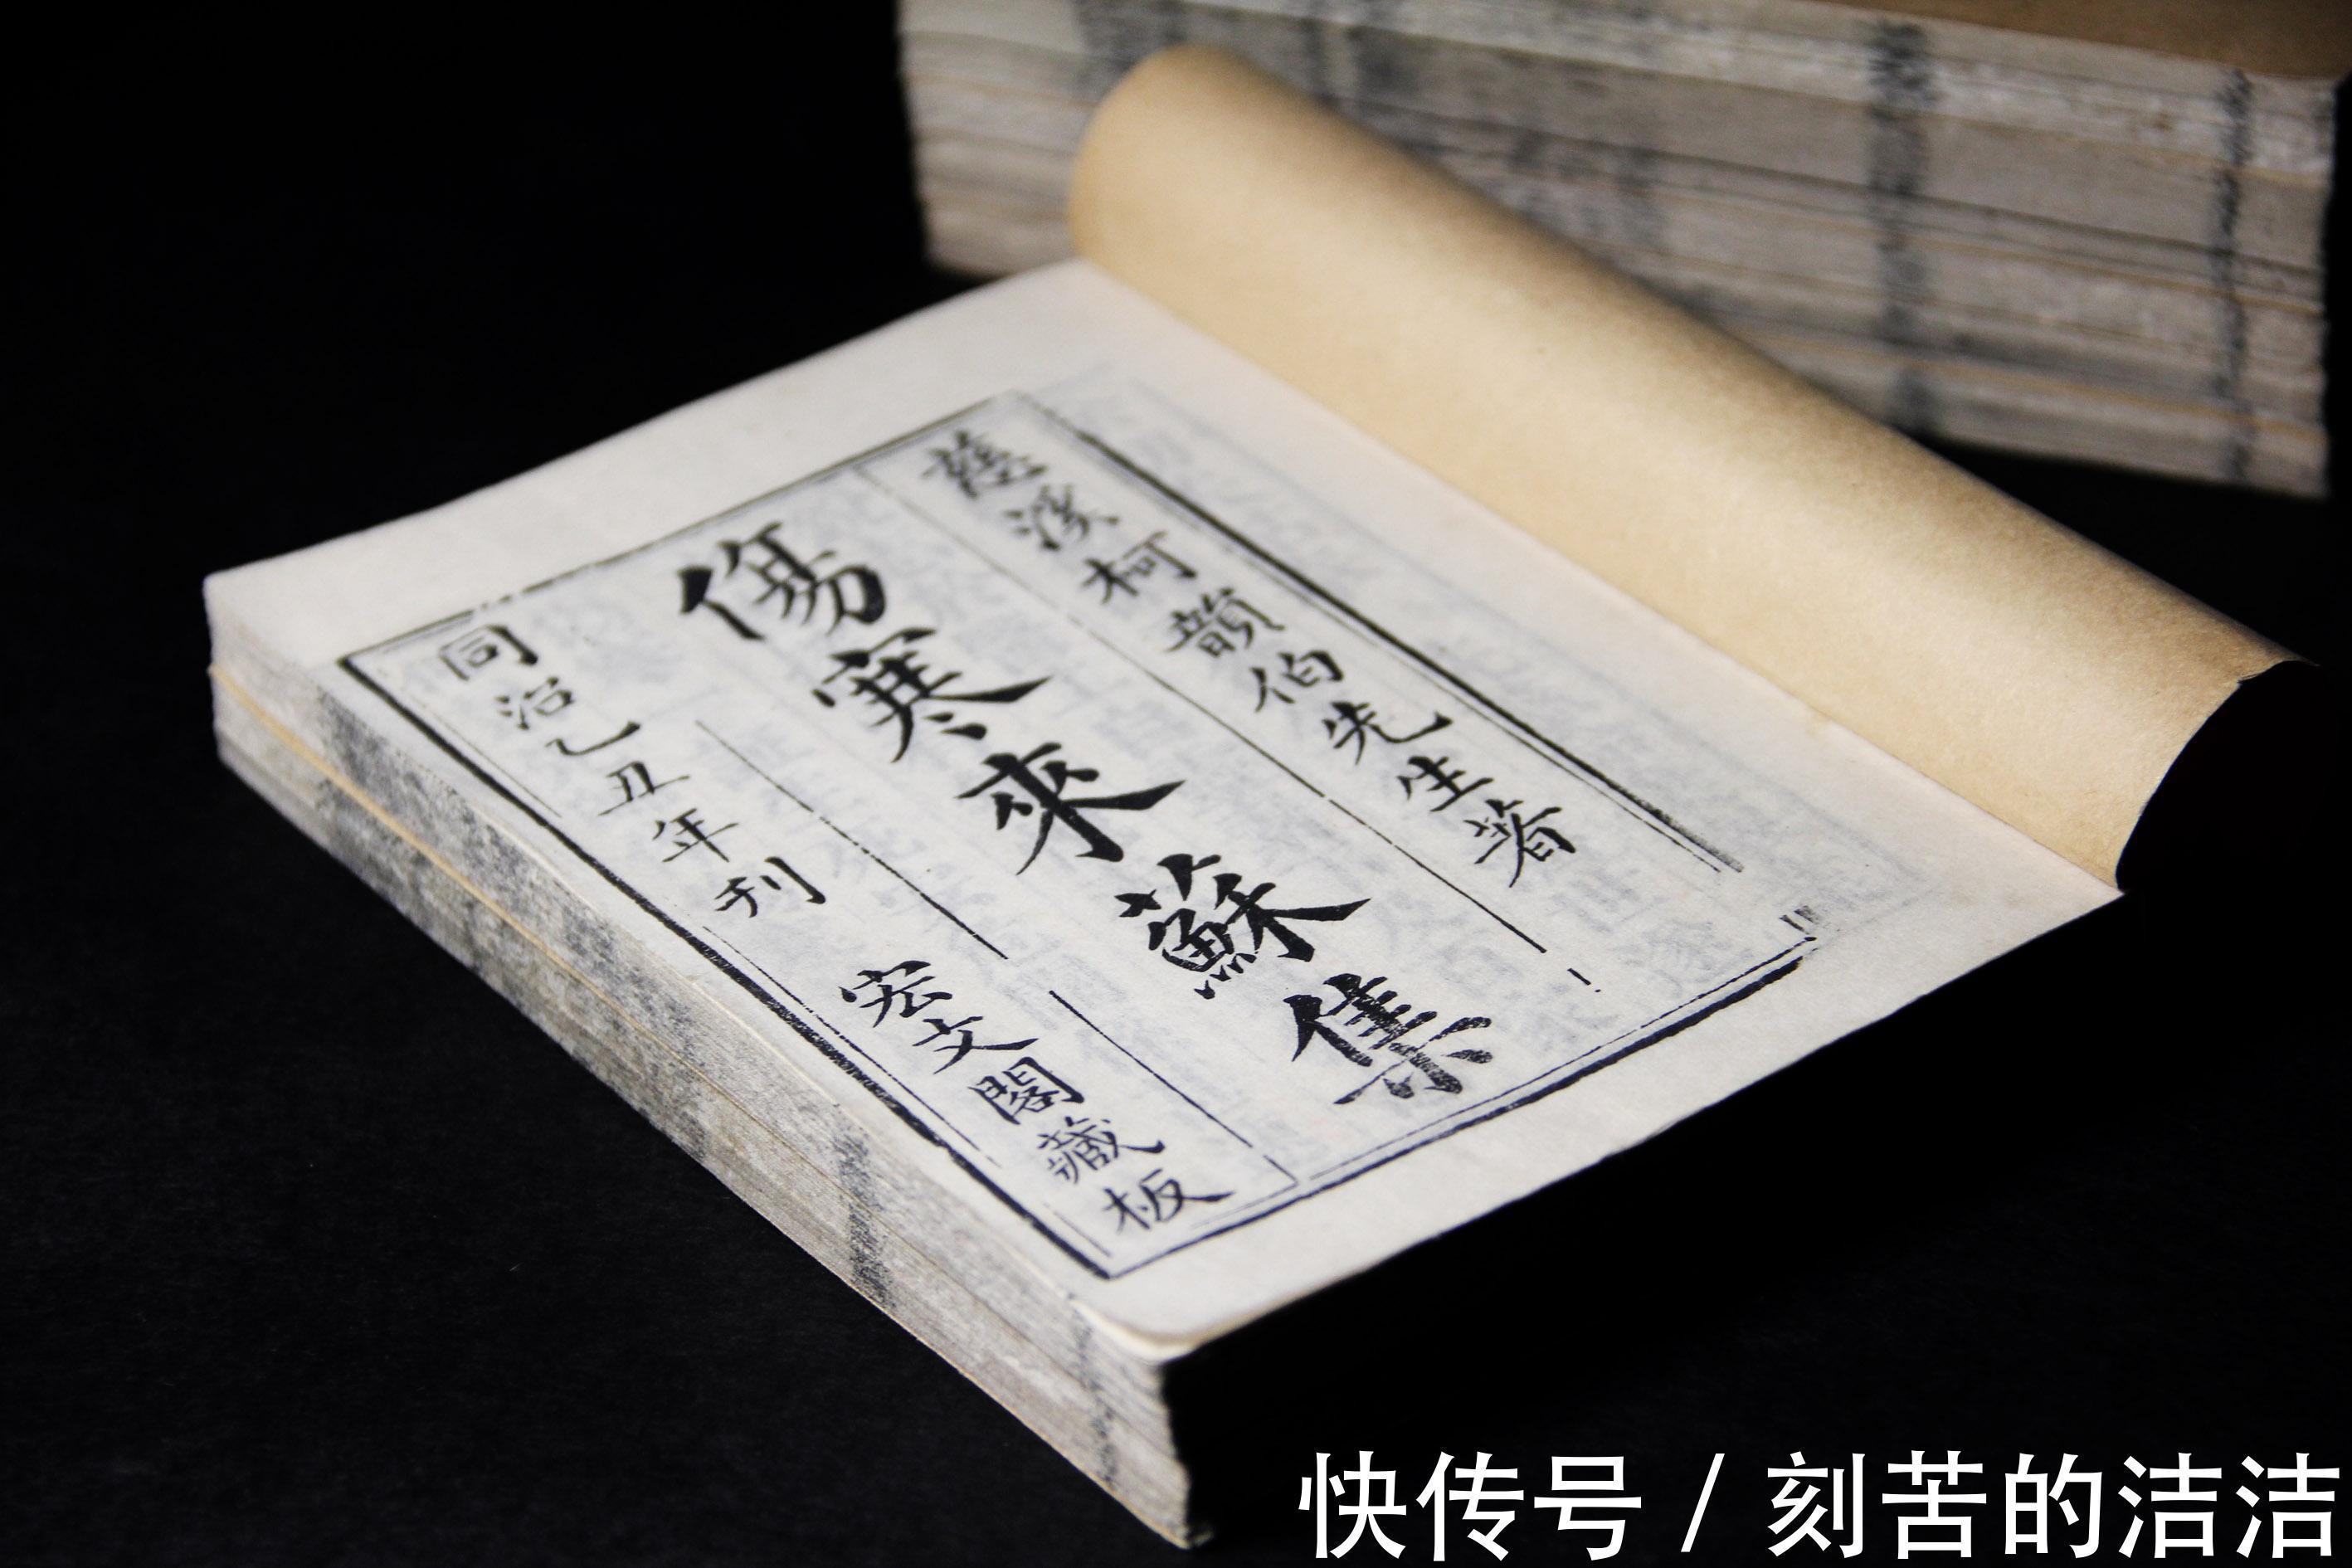 慈溪柯韻伯先生著
傷寒來蘇集
同治乙丑年刊
宏文閣藏板
快传号 / 刻苦的洁洁